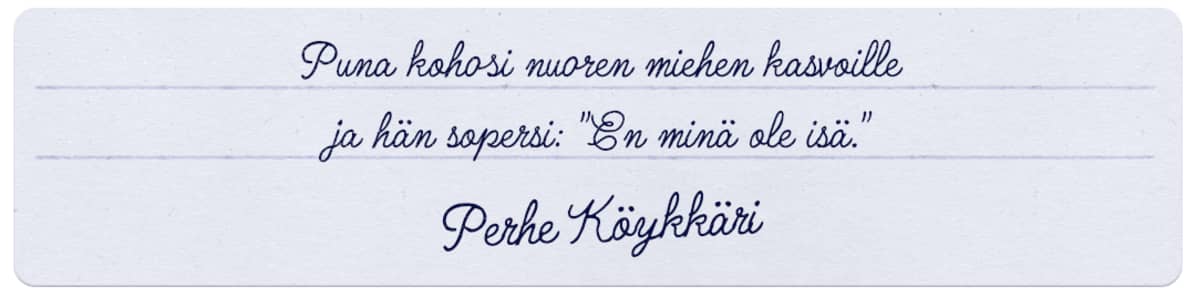 Puna kohosi nuoren miehen kasvoille
ja hän sopersi: "En minä ole isä."
Perhe Köykkäri